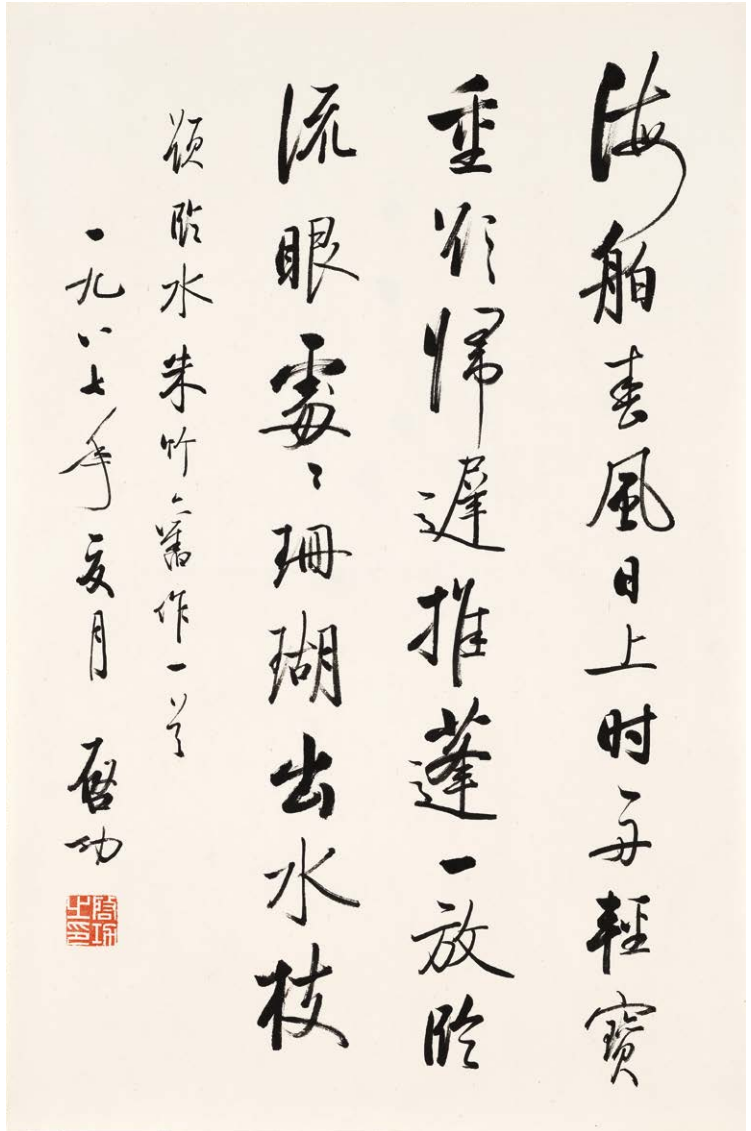 海舶春風日上时舟輕寶
重欲歸遲推蓬一放臨
流眼處〻珊瑚出水枝
題臨水朱竹舊作一首
一九八七年夏月 启功
启功之印